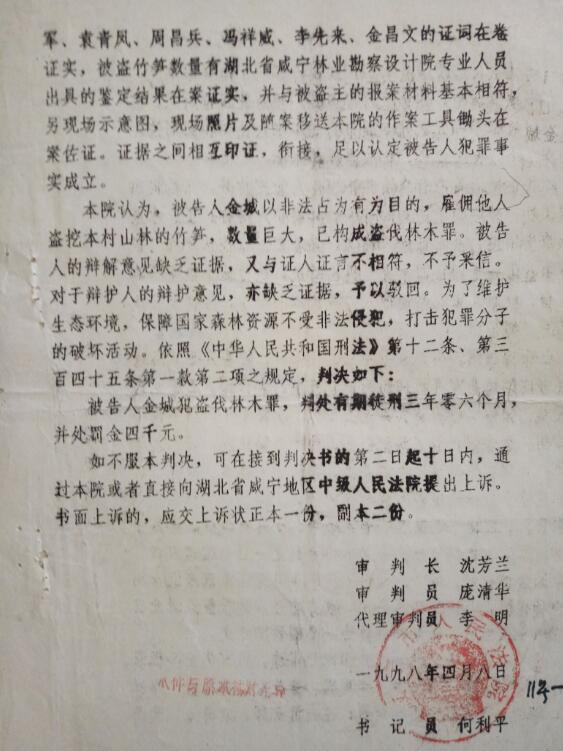 军、袁青凤、周昌兵、冯祥威、李先来、金昌文的证词在卷
证实，被盗竹笋数量有湖北省咸宁林业勘察设计院专业人员
出具的鉴定结果在案证实，并与被盗主的报案材料基本相符，
另现场示意图，现场照片及随案移送本院的作案工具锄头在
案佐证。证据之间相互印证，衔接，足以认定被告人犯罪事
实成立。
本院认为，被告人金城以非法占为有为目的，雇佣他人
盗挖本村山林的竹笋，数量巨大，已构成盗伐林木罪。被告
人的辩解意见缺乏证据，又与证人证言不相符，不予采信。
对于辩护人的辩护意见，亦缺乏证据，予以驳回。为了维护
生态环境，保障国家森林资源不受非法侵犯，打击犯罪分子
的破坏活动。依照《中华人民共和国刑法》第十二条、第三
百四十五条第一款第二项之规定，判决如下：
被告人金城犯盗伐林木罪，判处有期徒刑三年零六个月，
并处罚金四千元。
如不服本判决，可在接到判决书的第二日起十日内，通
过本院或者直接向湖北省咸宁地区中级人民法院提出上诉。
书面上诉的，应交上诉状正本一份，副本二份。
审判长 沈芳兰
审判员 庞清华
代理审判员 李明
一九九八年四月八日
本件与原本核对无异
书记员 何利平